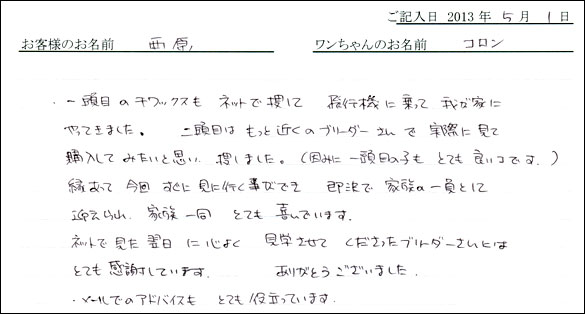 ご記入日 2013 年 5 月 1 日
お客様のお名前 西原 ワンちゃんのお名前 コロン
・一頭目のチワックスも ネットで捜して 飛行機に乗って 我が家に
やってきました。 二頭目は もっと近くのブリーダーさんで 実際に見て
購入してみたいと思い 捜しました。(因みに一頭目の子も とても良いコです。)
縁あって 今回 すぐに見に行く事ができ 即決で 家族の一員として
迎えられ 家族一同 とても 喜んでいます。
ネットで見た翌日に 心よく 見学させて くださったブリーダーさんには
とても 感謝しています. ありがとうございました.
・メールでのアドバイスも とても役立っています.